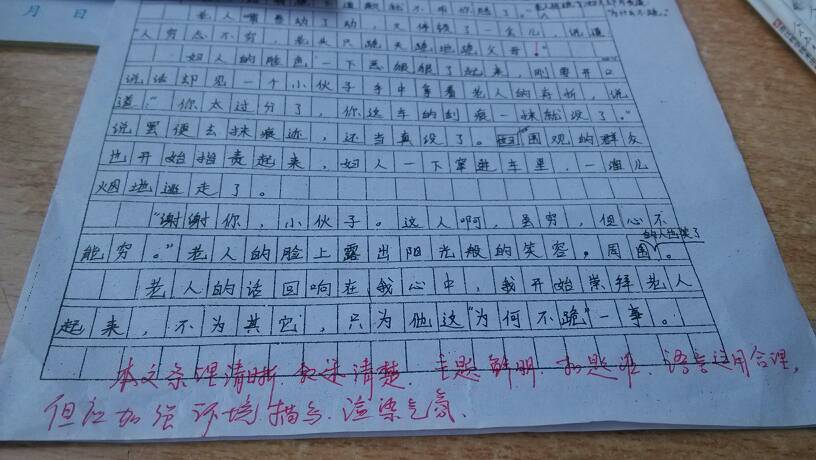 月 日
老人嘴唇动了动，又停顿了一会儿，说道
"人穷志不穷，老头只跪天跪地跪父母！"
妇人的脸色一下恶狠狠了起来，刚要开口
说话却见一个小伙子手中拿着老人的
说
道："你太过分了，你这车的刮痕一抹就没了。"
说罢便去抹痕迹，还当真没了。围观的群众
也开始指责起来，妇人一下窜进车里，一溜儿
烟地逃走了。
"谢谢你，小伙子。这人啊，虽穷，但心不
能穷。"老人的脸上露出阳光般的笑容。周围的人也笑了。
老人的话回响在我心中，我开始崇拜老人
起来，不为其它，只为他这"为何不跪"一事。
本文条理清晰、叙述清楚、主题鲜明、扣题准、语言运用合理，
但应加强环境描写、渲染气氛、